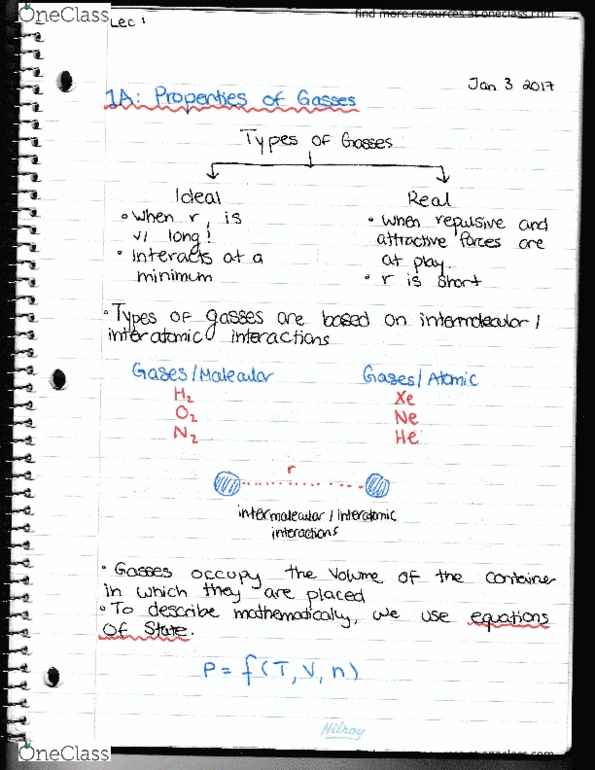 OneClass
find more resources at oneclass.com
Lec 1
Jan 3 2017
1A: Properties of Gasses
Types of Gasses
Ideal
Real
• when r, is
v/ long!
• Interacts at a
minimum
• when repulsive and
attractive forces are
at play.
• r is short
• Types of gasses are based on intermolecular /
interatomic interactions
Gases/Molecular
Gases/Atomic
H₂
Xe
O₂
Ne
N₂
He
r
intermolecular / interatomic
interactions
• Gasses occupy the volume of the container
in which they are placed
• To describe mathematically, we use equations
of State.
P = f(T, V, n)
Hilroy
OneClass
find more resources at oneclass.com